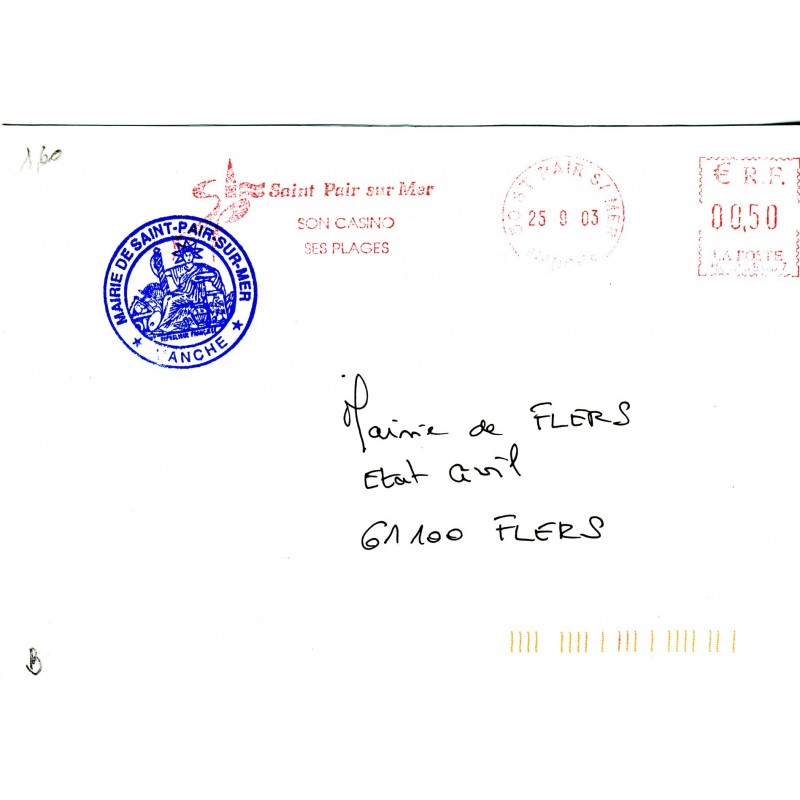 1,60
Saint Pair sur Mer
SON CASINO
SES PLAGES
50 ST PAIR S/ MER
25 9 03
€ R.F.
00,50
LA POSTE
MAIRIE DE SAINT-PAIR-SUR-MER
REPUBLIQUE FRANÇAISE
★ MANCHE ★
Mairie de FLERS
Etat Civil
61100 FLERS
B